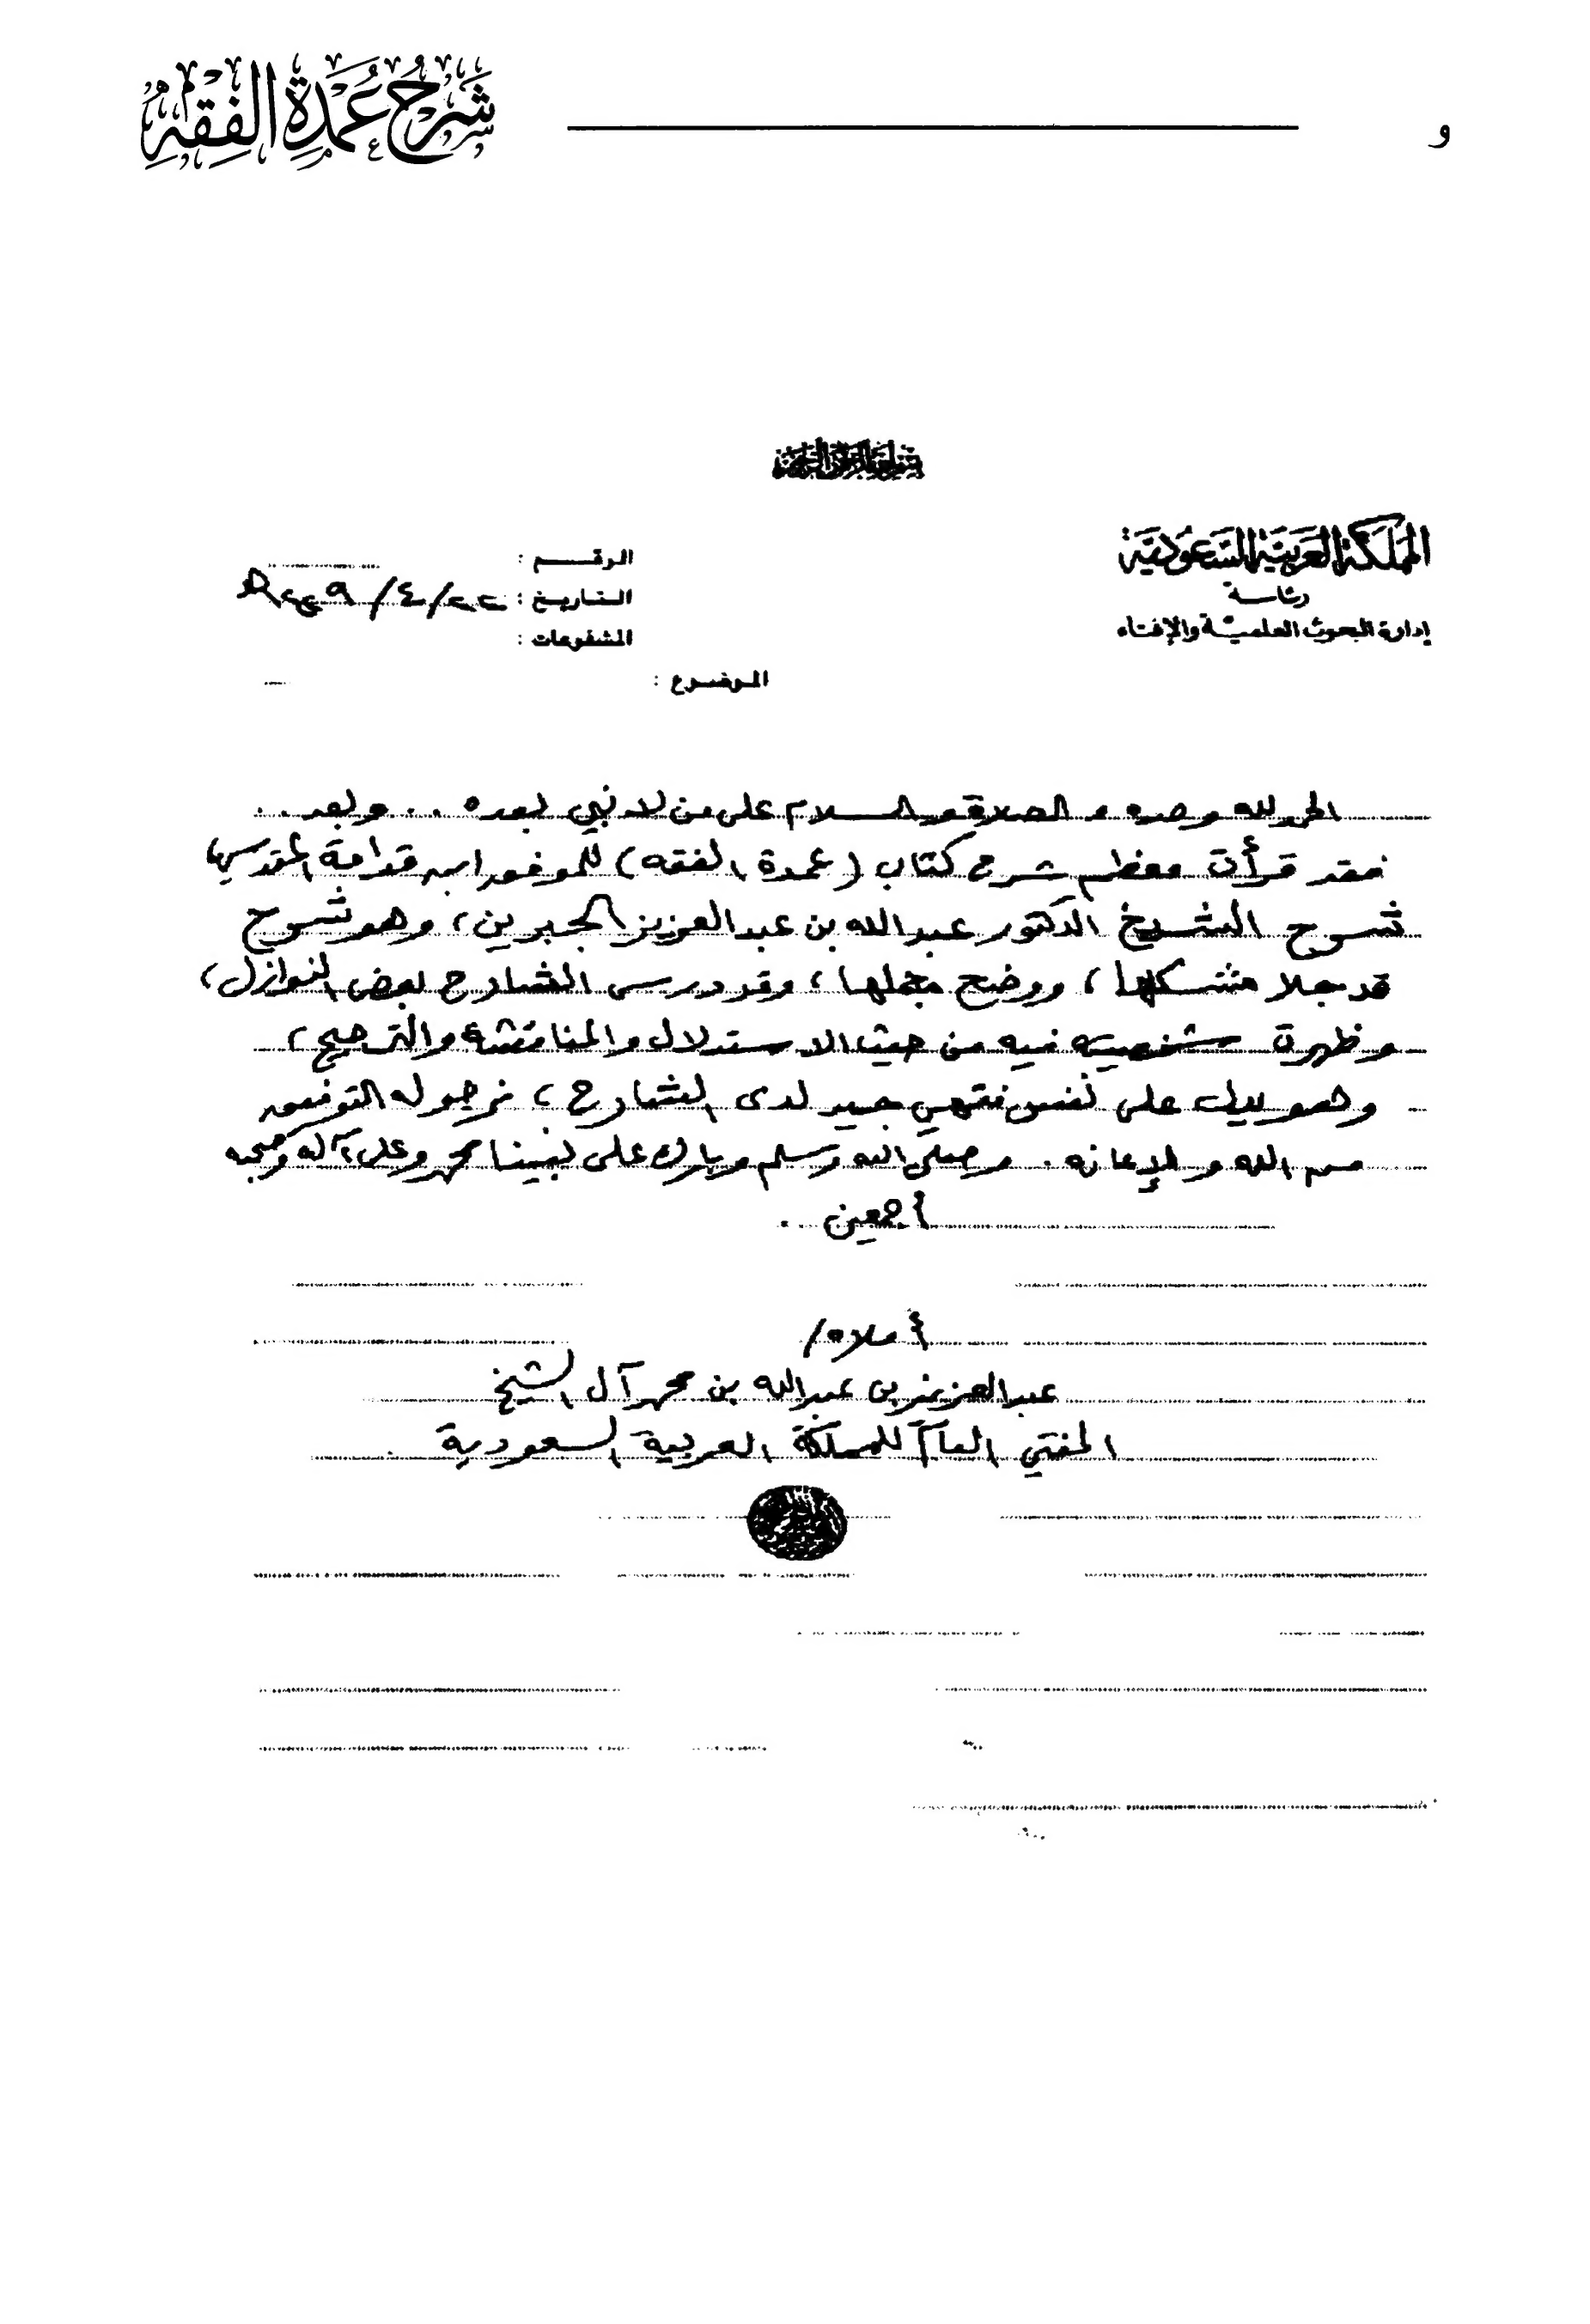 و
شَرْحُ عُمْدَةِ الفِقْهِ
المملكة العربية السعودية
رئاسة
إدارة البحوث العلمية والإفتاء
الرقم :
التاريخ : ٢٢/٤/
المشفوعات :
الموضوع :
الحمد لله وحده والصلاة والسلام على من لا نبي بعده .. وبعد ..
فقد قرأت معظم شرح كتاب (عمدة الفقه) للموفق ابن قدامة المقدسي،
شرح الشيخ الدكتور عبد الله بن عبد العزيز الجبرين، وهو شرح
قد جلا مشكلها، ووضح مجملها، وقد درس الشارح بعض النوازل،
وظهرت شخصيته فيه من حيث الاستدلال والمناقشة والترجيح،
وهو يدل على نفس فقهي جيد لدى الشارح، نرجو له التوفيق
من الله والإعانة. وصلى الله وسلم وبارك على نبينا محمد وعلى آله وصحبه
أجمعين .
أملاه/
عبد العزيز بن عبد الله بن محمد آل الشيخ
المفتي العام للمملكة العربية السعودية .